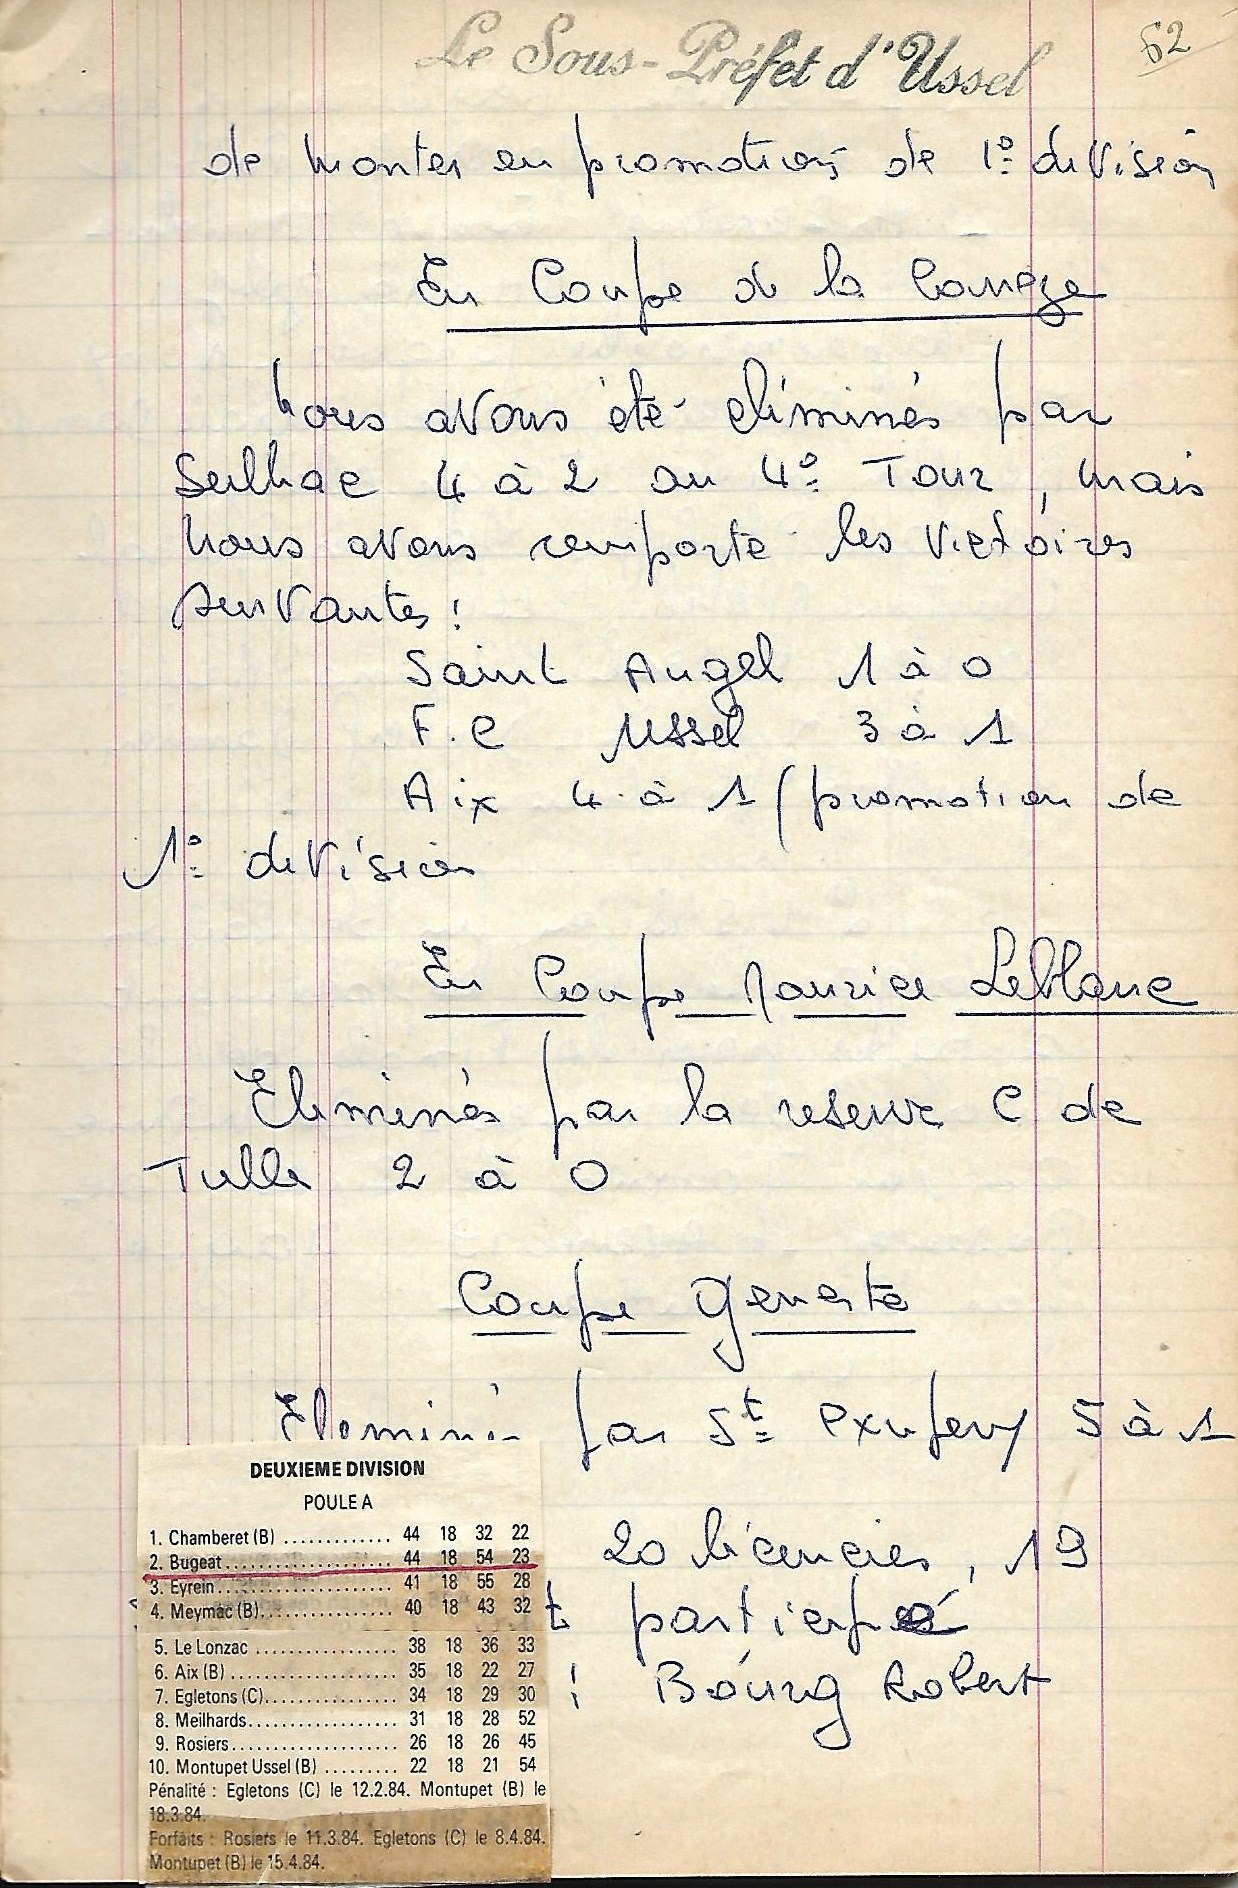 Le Sous-Préfet d'Ussel
62
de monter en promotion de 1º division
En Coupe de la Corrèze
Nous avons été éliminés par
Seilhac 4 à 2 au 4º Tour, mais
nous avons remporté les victoires
suivantes :
Saint Angel 1 à 0
F.C Ussel 3 à 1
Aix 4 à 1 (promotion de
1º division
En Coupe Maurice Leblanc
Eliminés par la reserve C de
Tulle 2 à 0
Coupe Geneste
Eliminé par St Exupery 5 à 1
20 licenciés, 19
t participé
: Bourg Robert
DEUXIEME DIVISION
POULE A
1. Chamberet (B) ............. 44 18 32 22
2. Bugeat ..................... 44 18 54 23
3. Eyrein ...................... 41 18 55 28
4. Meymac (B) ................. 40 18 43 32
5. Le Lonzac .................. 38 18 36 33
6. Aix (B) ..................... 35 18 22 27
7. Egletons (C) ................ 34 18 29 30
8. Meilhards ................... 31 18 28 52
9. Rosiers ..................... 26 18 26 45
10. Montupet Ussel (B) ......... 22 18 21 54
Pénalité : Egletons (C) le 12.2.84. Montupet (B) le
18.3.84.
Forfaits : Rosiers le 11.3.84. Egletons (C) le 8.4.84.
Montupet (B) le 15.4.84.